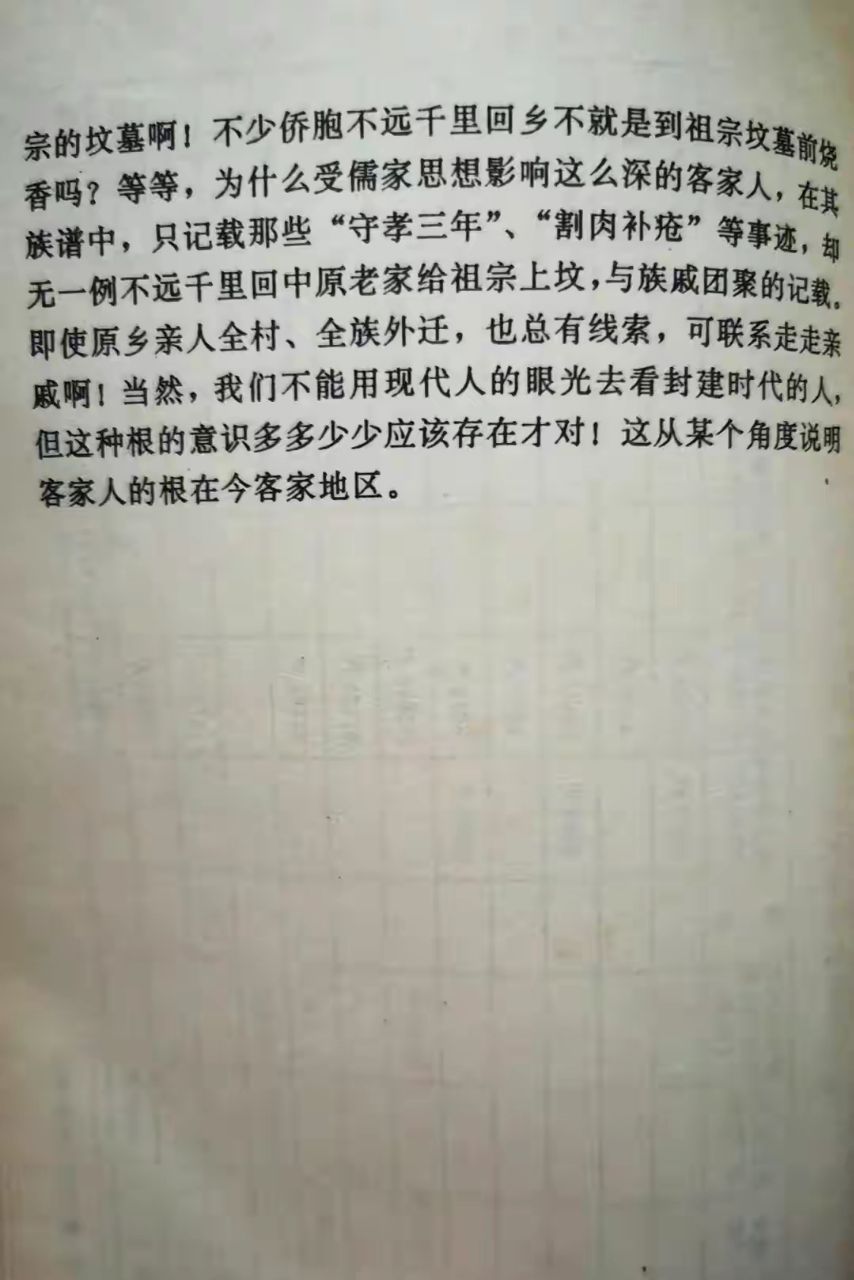 宗的坟墓啊！不少侨胞不远千里回乡不就是到祖宗坟墓前烧
香吗？等等，为什么受儒家思想影响这么深的客家人，在其
族谱中，只记载那些“守孝三年”、“割肉补疮”等事迹，却
无一例不远千里回中原老家给祖宗上坟，与族戚团聚的记载。
即使原乡亲人全村、全族外迁，也总有线索，可联系走走亲
戚啊！当然，我们不能用现代人的眼光去看封建时代的人，
但这种根的意识多多少少应该存在才对！这从某个角度说明
客家人的根在今客家地区。